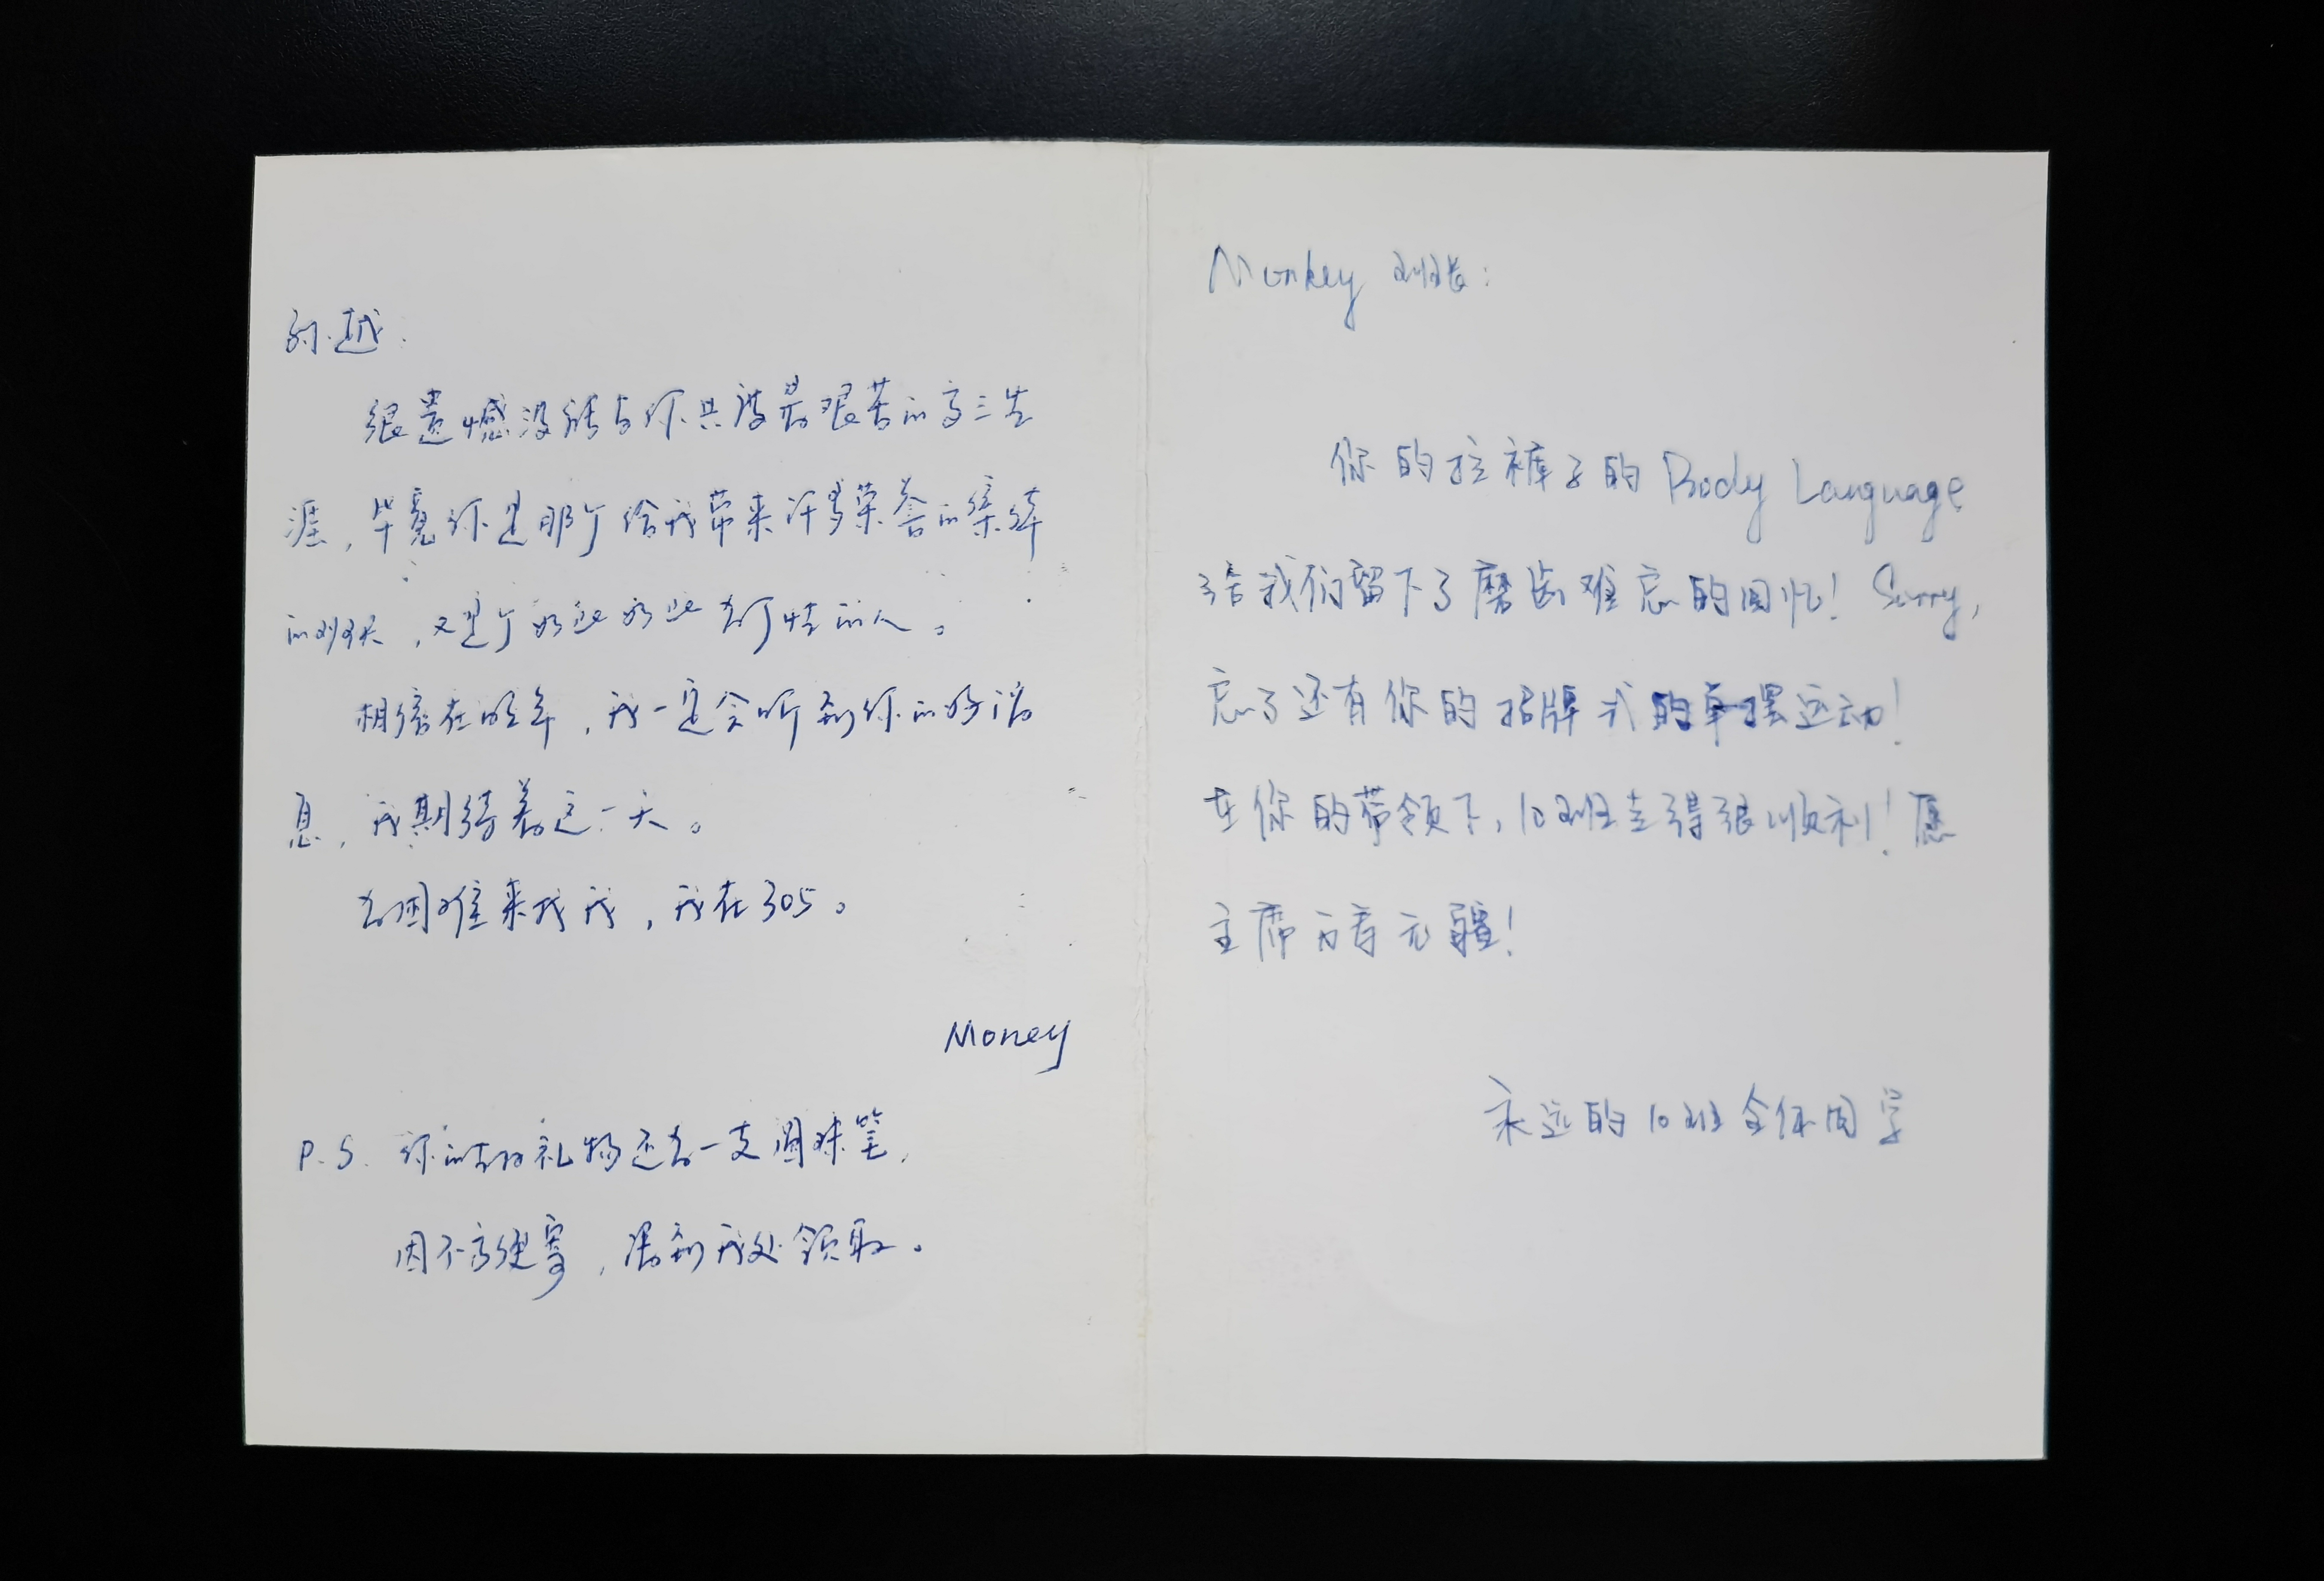 越:
很遗憾没能与你共渡最艰苦的高三生
涯,毕竟你是那个给我带来许多荣誉的集体
的班长,又是个如此如此有才情的人。
相信在明年,我一定会听到你的好消
息,我期待着这一天。
有困难来找我,我在305。
Money
P.S. 你的礼物还有一支圆珠笔,
因不方便寄,请到我处领取。
Monkey 班长:
你的拉裤子的 Body Language
给我们留下了磨齿难忘的回忆! Sorry,
忘了还有你的招牌式的单摆运动!
在你的带领下,10班走得很顺利!愿
主席万寿无疆!
永远的10班全体同学